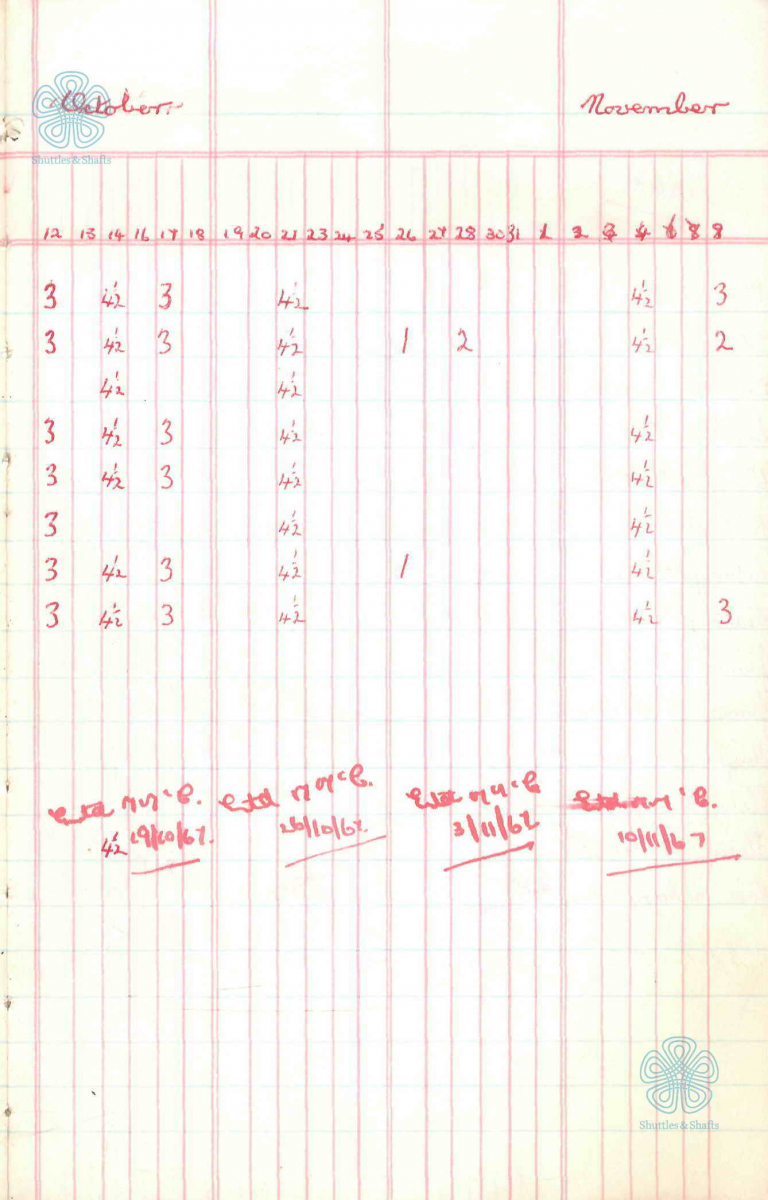 October November
Shuttles & Shafts
12 13 14 16 17 18 19 20 21 23 24 25 26 27 28 30 31 1 2 3 4 6 8
3 4½ 3 4½ 4½ 3
3 4½ 3 4½ 1 2 4½ 2
4½ 4½
3 4½ 3 4½ 4½
3 4½ 3 4½ 4½
3 4½ 4½
3 4½ 3 4½ 1 4½
3 4½ 3 4½ 4½ 3
4½ 19/10/67. 26/10/67. 3/11/67 10/11/67
Shuttles & Shafts